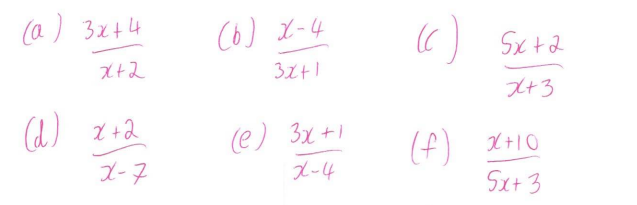 (a) 3x+4/x+2 (b) x-4/3x+1 (c) 5x+2/x+3
(d) x+2/x-7 (e) 3x+1/x-4 (f) x+10/5x+3